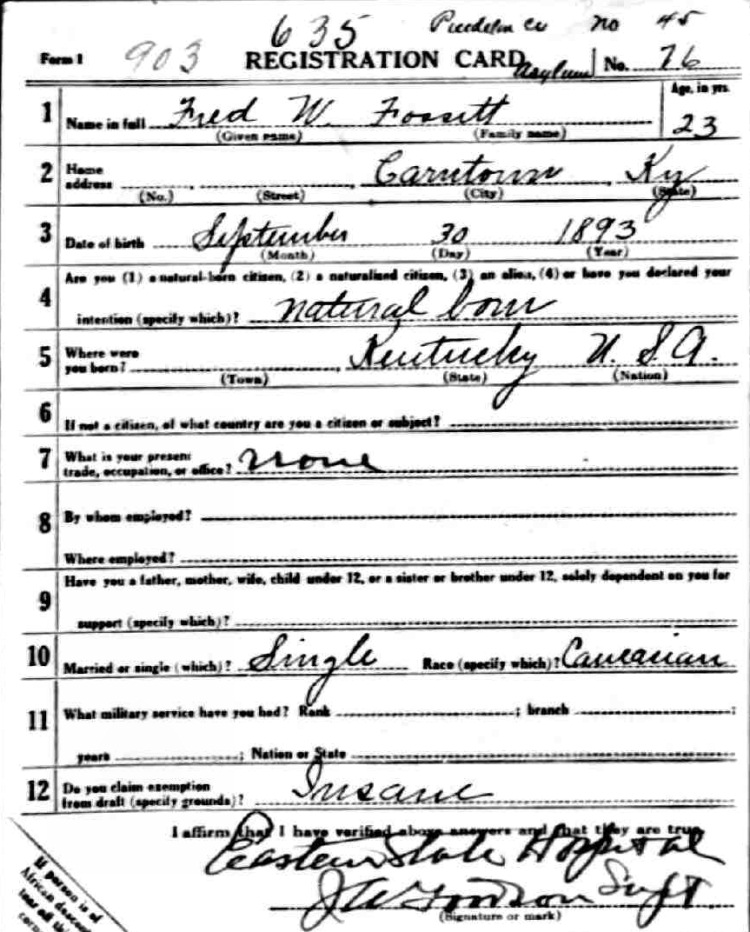 635 Pendleton Co no 45
Form 1 903 REGISTRATION CARD Asylum No. 76
1 Name in full Fred W. Fossitt Age, in yrs. 23
(Given name) (Family name)
2 Home address Carntown Ky
(No.) (Street) (City) (State)
3 Date of birth September 30 1893
(Month) (Day) (Year)
4 Are you (1) a natural-born citizen, (2) a naturalized citizen, (3) an alien, (4) or have you declared your
intention (specify which)? natural born
5 Where were you born? Kentucky U. S. A.
(Town) (State) (Nation)
6 If not a citizen, of what country are you a citizen or subject?
7 What is your present trade, occupation, or office? none
8 By whom employed?
Where employed?
9 Have you a father, mother, wife, child under 12, or a sister or brother under 12, solely dependent on you for
support (specify which)?
10 Married or single (which)? Single Race (specify which)? Caucasian
11 What military service have you had? Rank ; branch ;
years ; Nation or State
12 Do you claim exemption from draft (specify grounds)? Insane
I affirm that I have verified above answers and that they are true.
Eastern State Hospital
J A Goodson Supt
(Signature or mark)
If person is of
African descent
tear off this
corner